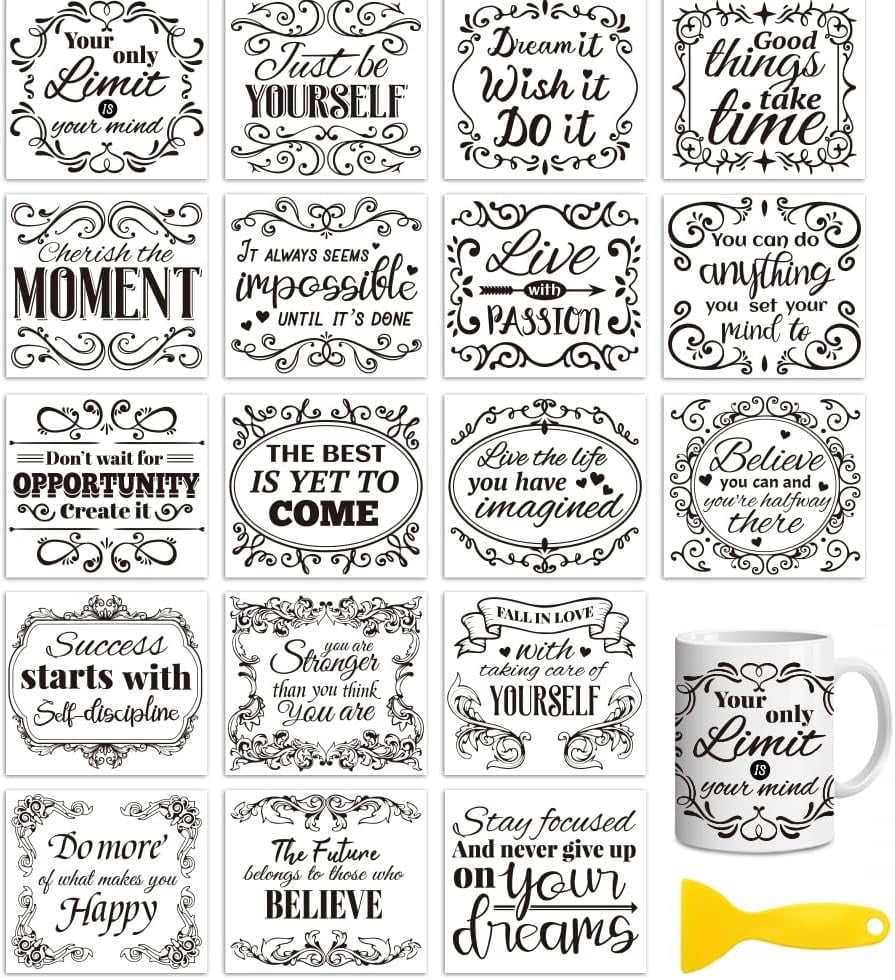 Your only
Limit
IS
your mind
Just be
YOURSELF
Dream it
Wish it
Do it
Good
things
take
time
Cherish the
MOMENT
IT ALWAYS SEEMS
impossible
UNTIL IT'S DONE
Live
with
PASSION
You can do
anything
you set your
mind to
Don't wait for
OPPORTUNITY
Create it
THE BEST
IS YET TO
COME
Live the life
you have
imagined
Believe
you can and
you're halfway
there
Success
starts with
Self-discipline
you are
Stronger
than you think
You are
FALL IN LOVE
with
taking care of
YOURSELF
Your only
Limit
IS
your mind
Do more
of what makes you
Happy
The Future
belongs to those who
BELIEVE
Stay focused
And never give up
on your
dreams